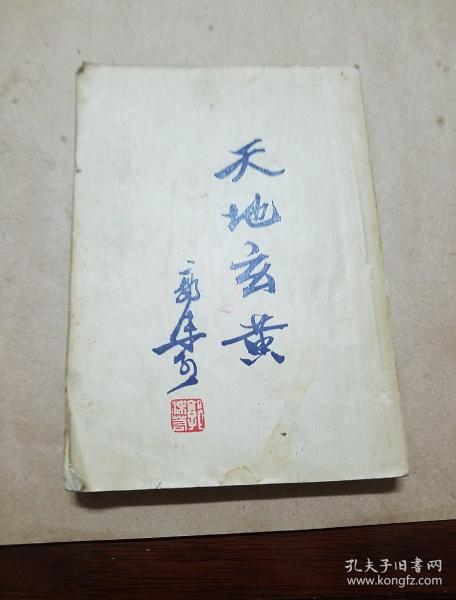 天地玄黄
郭沫若
孔夫子旧书网
www.kongfz.com